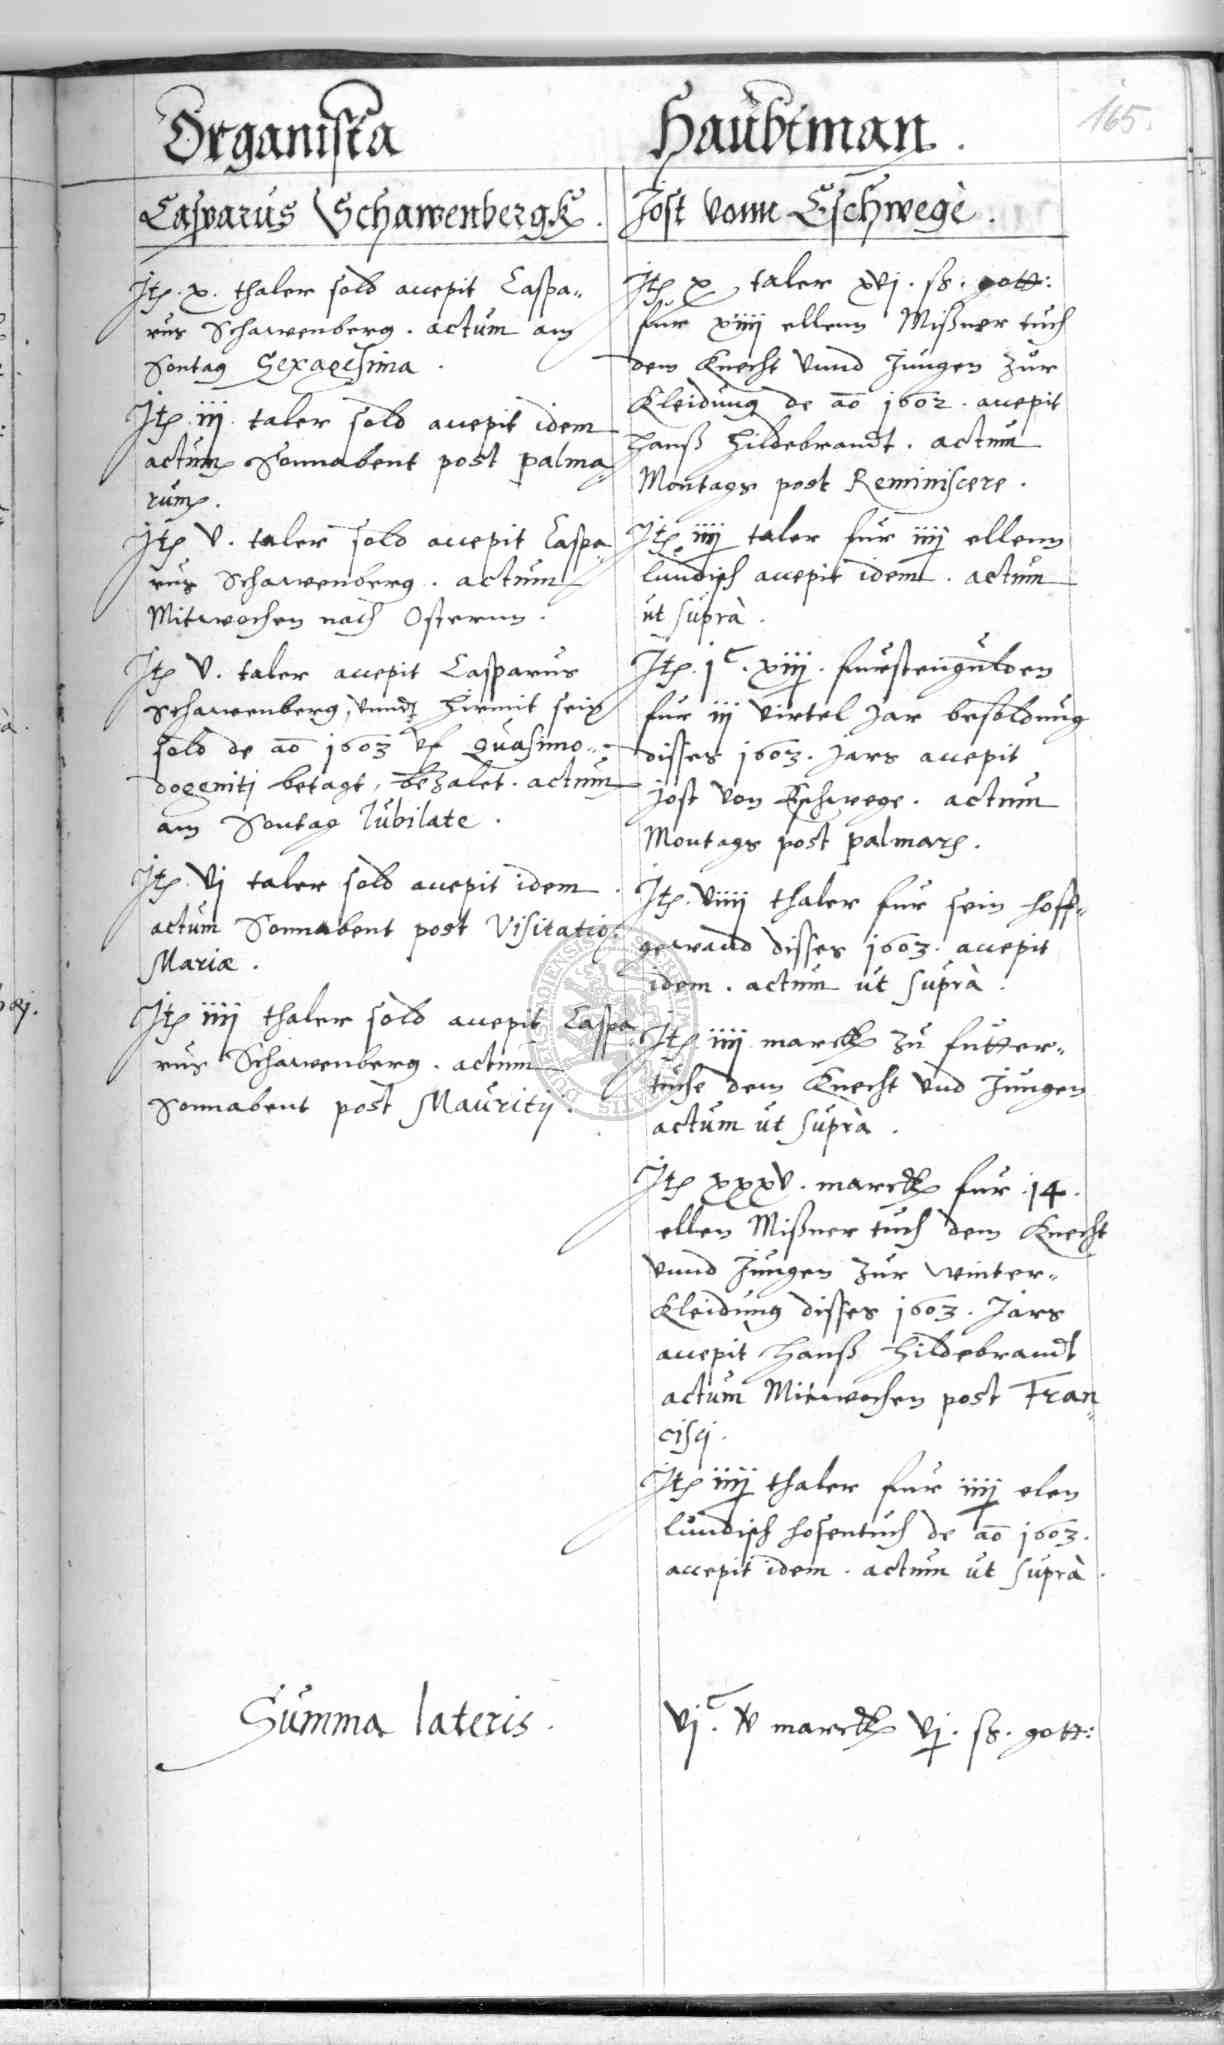 165.
Organista
Casparus Schawenbergk.
Itẽ. x. thaler sold accepit Caspa„
rus Schawenberg. actum am
Sontag Sexagesima.
Itẽ. iij. taler sold accepit idem
actum Sonnabent post palma„
rum.
Itẽ V. taler sold accepit Caspa„
rus Schawenberg. actum
Mitwochen nach Osternn.
Itẽ V. taler accepit Casparus
Schawenberg, unndt hirmit sein
sold de aõ 1603 uf Quasimo„
dogeniti betagt, bezalet. actum
am Sontag Iubilate.
Itẽ. Vj taler sold accepit idem.
actum Sonnabent post Visitatio:
Mariæ.
Itẽ iiij thaler sold accepit Caspa„
rus Schawenberg. actum
Sonnabent post Mauritij.
Haubtman.
Jost vonn Eschwege.
Itẽ x, taler xvj. ß. gott:
fur xiiij ellenn Mißner tuch
dem Knecht vnnd Jungen zur
Kleidung de aõ 1602. accepit
Hanß Hildebrandt. actum
Montags post Reminiscere.
Itẽ iiij taler fur iiij ellenn
lundisch accepit idem. actum
ut suprà.
Itẽ. jᶜ. xiij. furstengulden
fur iij virtel Jar besoldung
disses 1603. Jars accepit
Jost von Eschwege. actum
Montags post palmarũ.
Itẽ. viiij thaler fur sein hoff„
gewand disses 1603. accepit
idem. actum ut suprà.
Itẽ iiij marck zu futter„
tuche dem Knecht vnd Jungen
actum ut suprà.
Itẽ xxxv. marck fur 14.
ellen Mißner tuch dem Knecht
vnnd Jungen zur winter„
Kleidung disses 1603. Jars
accepit Hanß Hildebrandt
actum Mitwochen post Fran„
cisci.
Itẽ iiij thaler fur iiij elen
lundisch hosentuch de aõ 1603.
accepit idem. actum ut suprà.
Summa lateris.
vjᶜ. marck vj. ß. gott: